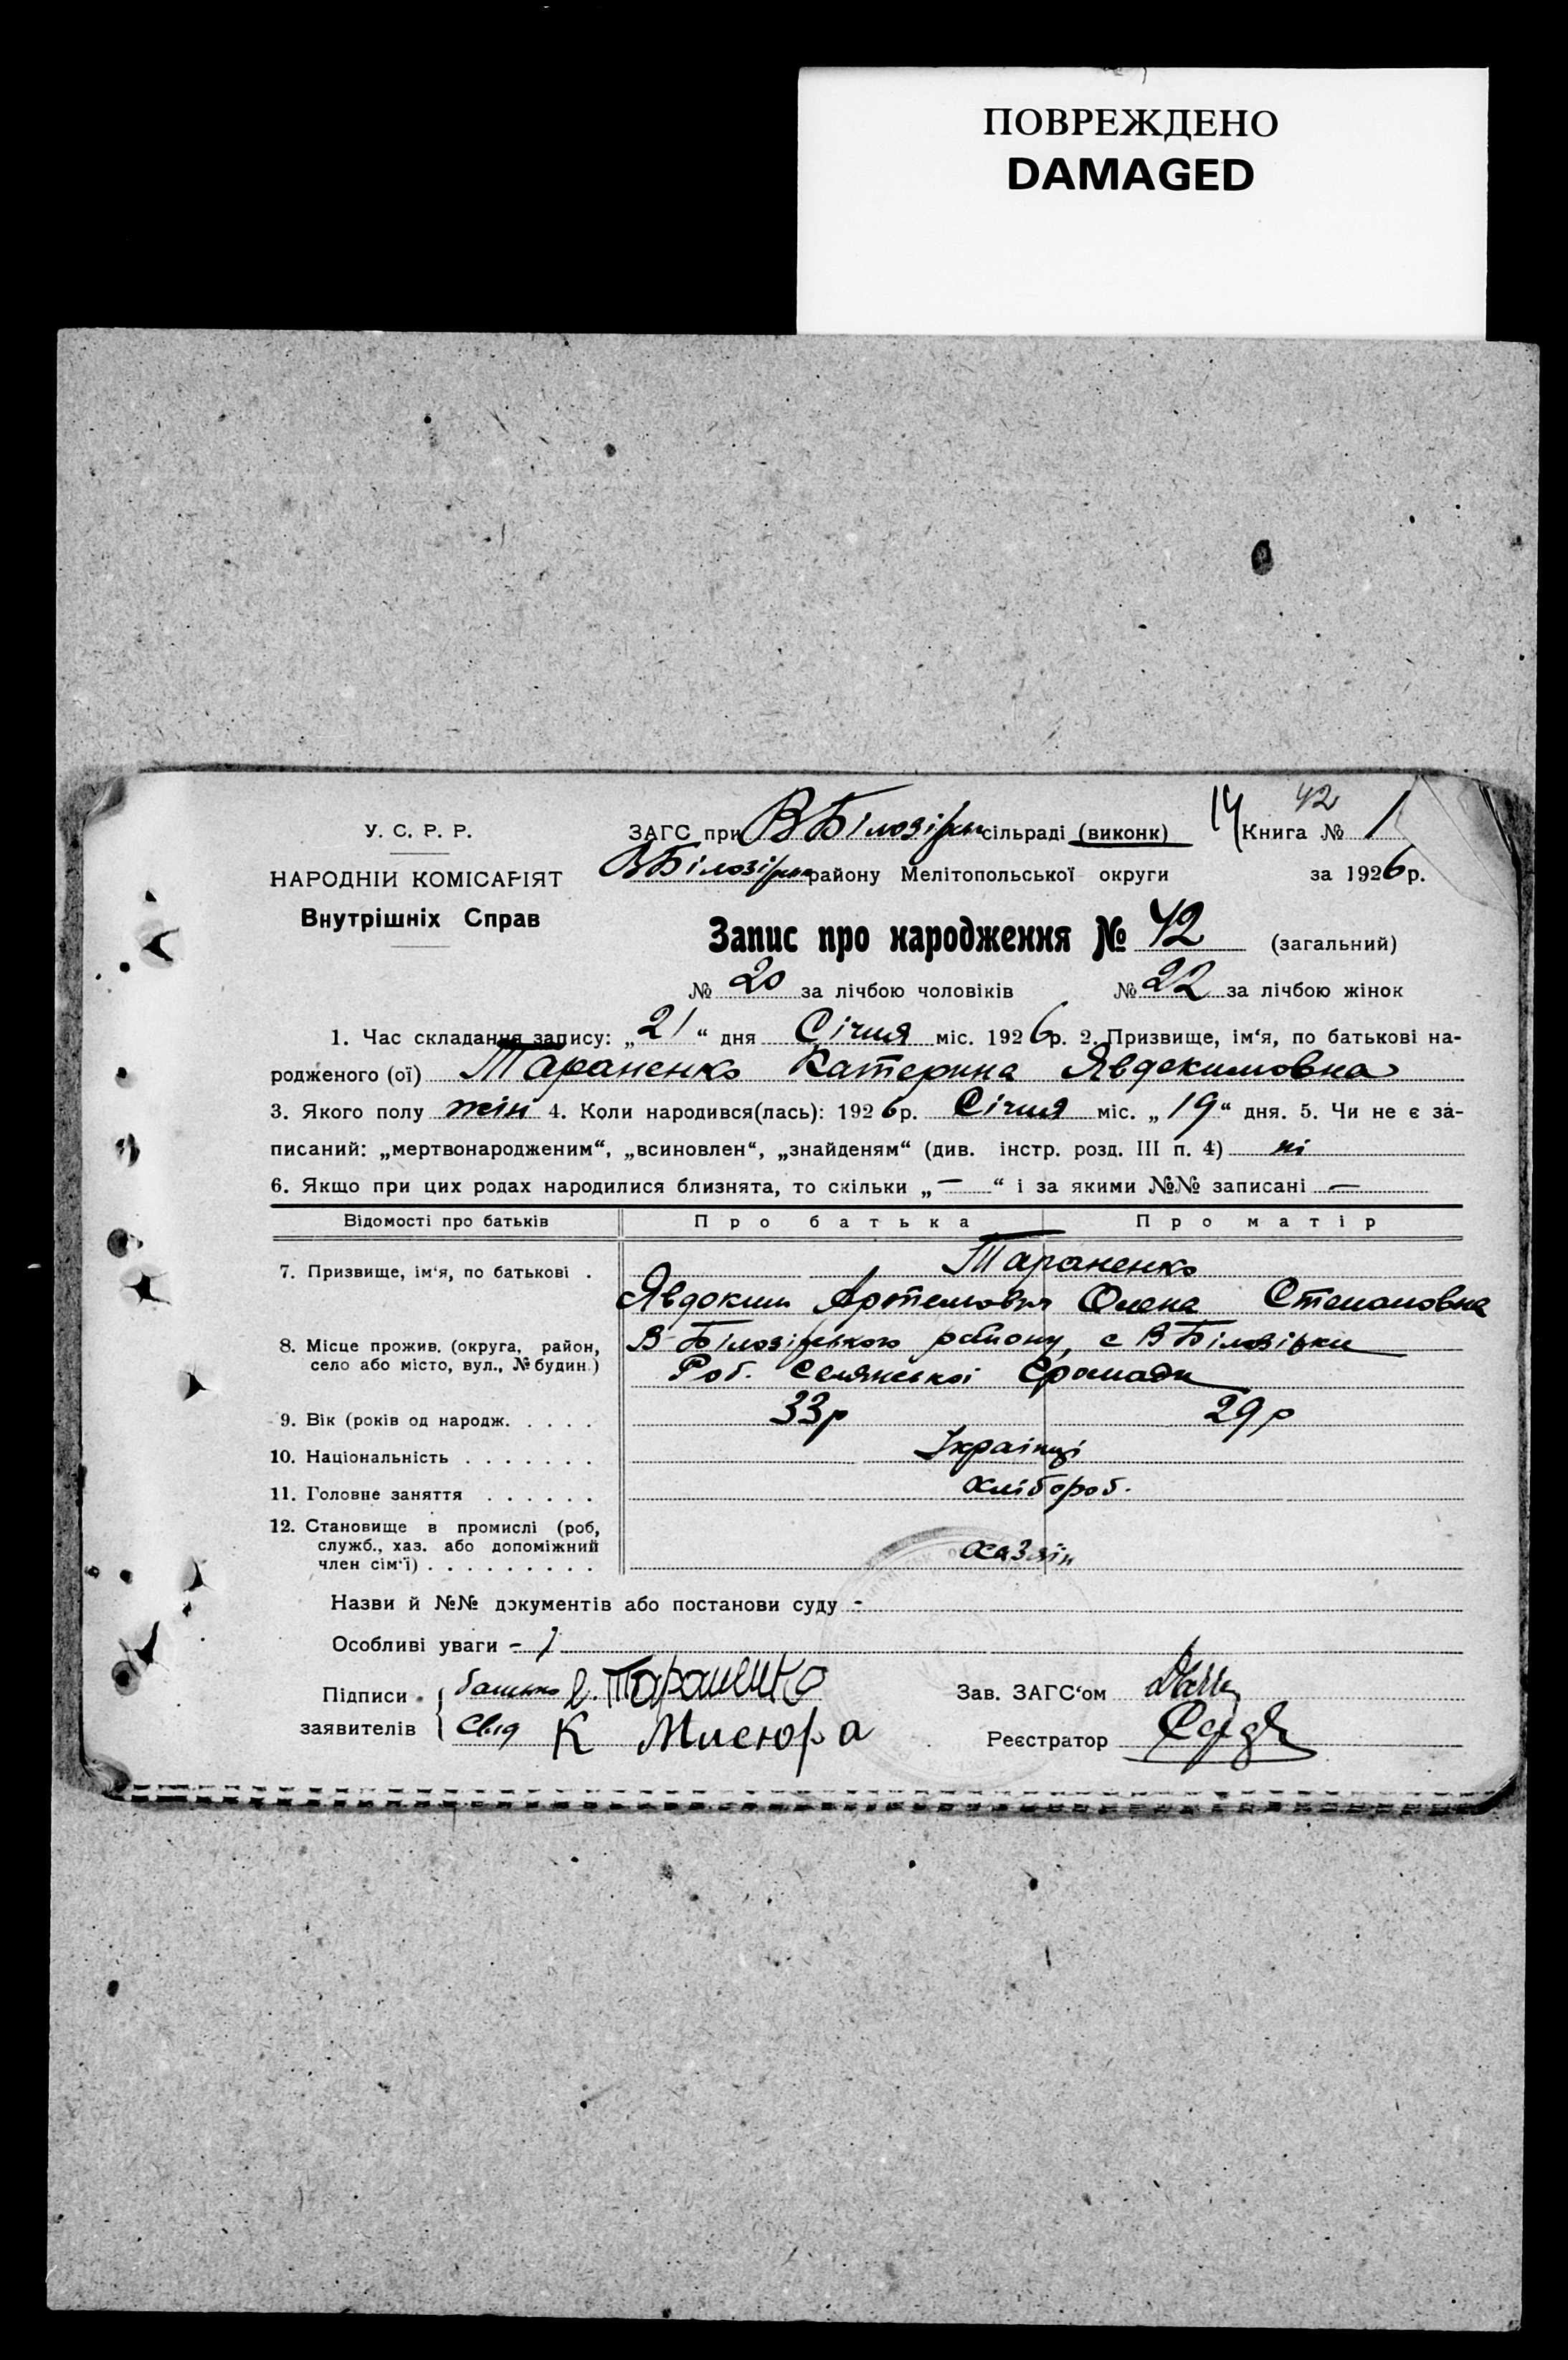 ПОВРЕЖДЕНО
DAMAGED
14 42
У. С. Р. Р.
ЗАГС при В Білозірськ сільраді (виконк) Книга № 1
НАРОДНІЙ КОМІСАРІЯТ
В Білозірськ району Мелітопольської округи за 1926 р.
Внутрішніх Справ
Запис про народження № 42 (загальний)
№ 20 за лічбою чоловіків № 22 за лічбою жінок
1. Час складання запису: „21“ дня Січня міс. 1926 р. 2. Призвище, ім‘я, по батькові на-
родженого (ої) Тараненко Катерина Явдокимовна
3. Якого полу жін 4. Коли народився(лась): 1926 р. Січня міс. „19“ дня. 5. Чи не є за-
писаний: „мертвонародженим“, „всиновлен“, „знайденям“ (див. інстр. розд. III п. 4) ні
6. Якщо при цих родах народилися близнята, то скільки „—“ і за якими №№ записані —
Відомості про батьків Про батька Про матір
7. Призвище, ім‘я, по батькові . Тараненко
Явдоким Артемович Олена Степановна
8. Місце прожив. (округа, район, В Білозірського району, с В Білозірки
село або місто, вул., № будин.) Роб. Селянської Громади
9. Вік (років од народж. . . . . 33 р 29 р
10. Національність . . . . . . . Українці
11. Головне заняття . . . . . . хлібороб.
12. Становище в промислі (роб,
служб., хаз. або допоміжний хазяїн
член сім‘ї) . . . . . . . . .
Назви й №№ документів або постанови суду -
Особливі уваги -
Підписи батько Є. Тараненко Зав. ЗАГС‘ом
заявителів Свід К Мисюра Реєстратор